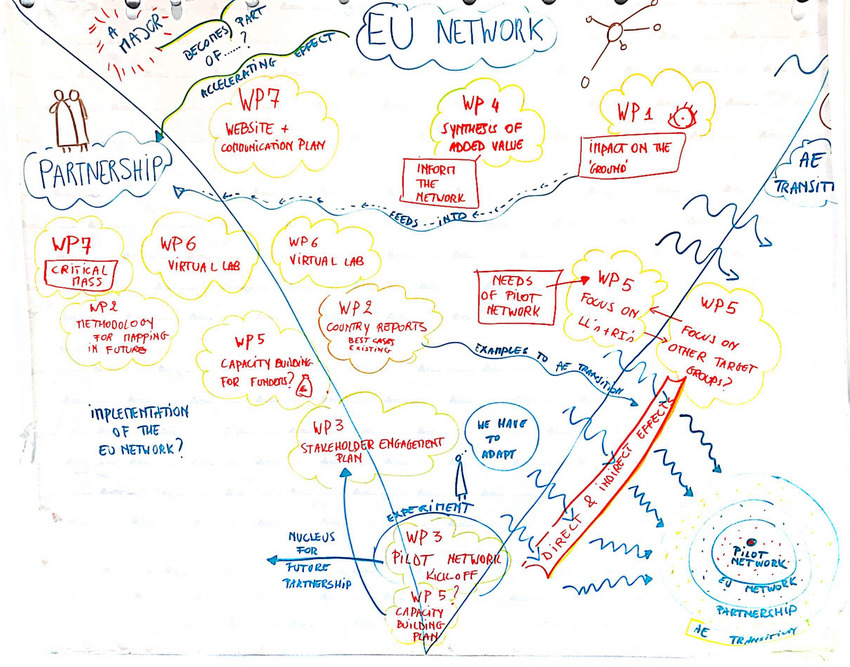 A
MAJOR
BECOMES PART
OF......?
ACCELERATING EFFECT
EU NETWORK
WP7
WEBSITE +
COMMUNICATION PLAN
WP 4
SYNTHESIS OF
ADDED VALUE
INFORM
THE
NETWORK
WP1
IMPACT ON THE
'GROUND'
AE
TRANSITI
PARTNERSHIP
FEEDS INTO
WP7
CRITICAL
MASS
WP6
VIRTUAL LAB
WP6
VIRTUAL LAB
WP2
METHODOLOGY
FOR MAPPING
IN FUTURE
WP5
CAPACITY BUILDING
FOR FUNDERS?
WP2
COUNTRY REPORTS
BEST CASES
EXISTING
NEEDS
OF PILOT
NETWORK
WP5
FOCUS ON
LL's+RI's
WP5
FOCUS ON
OTHER TARGET
GROUPS?
EXAMPLES TO AE TRANSITION
IMPLEMENTATION
OF THE
EU NETWORK?
WP3
STAKEHOLDER ENGAGEMENT
PLAN
WE HAVE
TO
ADAPT
DIRECT & INDIRECT EFFECTS
EXPERIMENT
NUCLEUS
FOR
FUTURE
PARTNERSHIP
WP3
PILOT NETWORK
KICK-OFF
WP5?
CAPACITY
BUILDING
PLAN
PILOT
NETWORK
EU NETWORK
PARTNERSHIP
AE TRANSITION